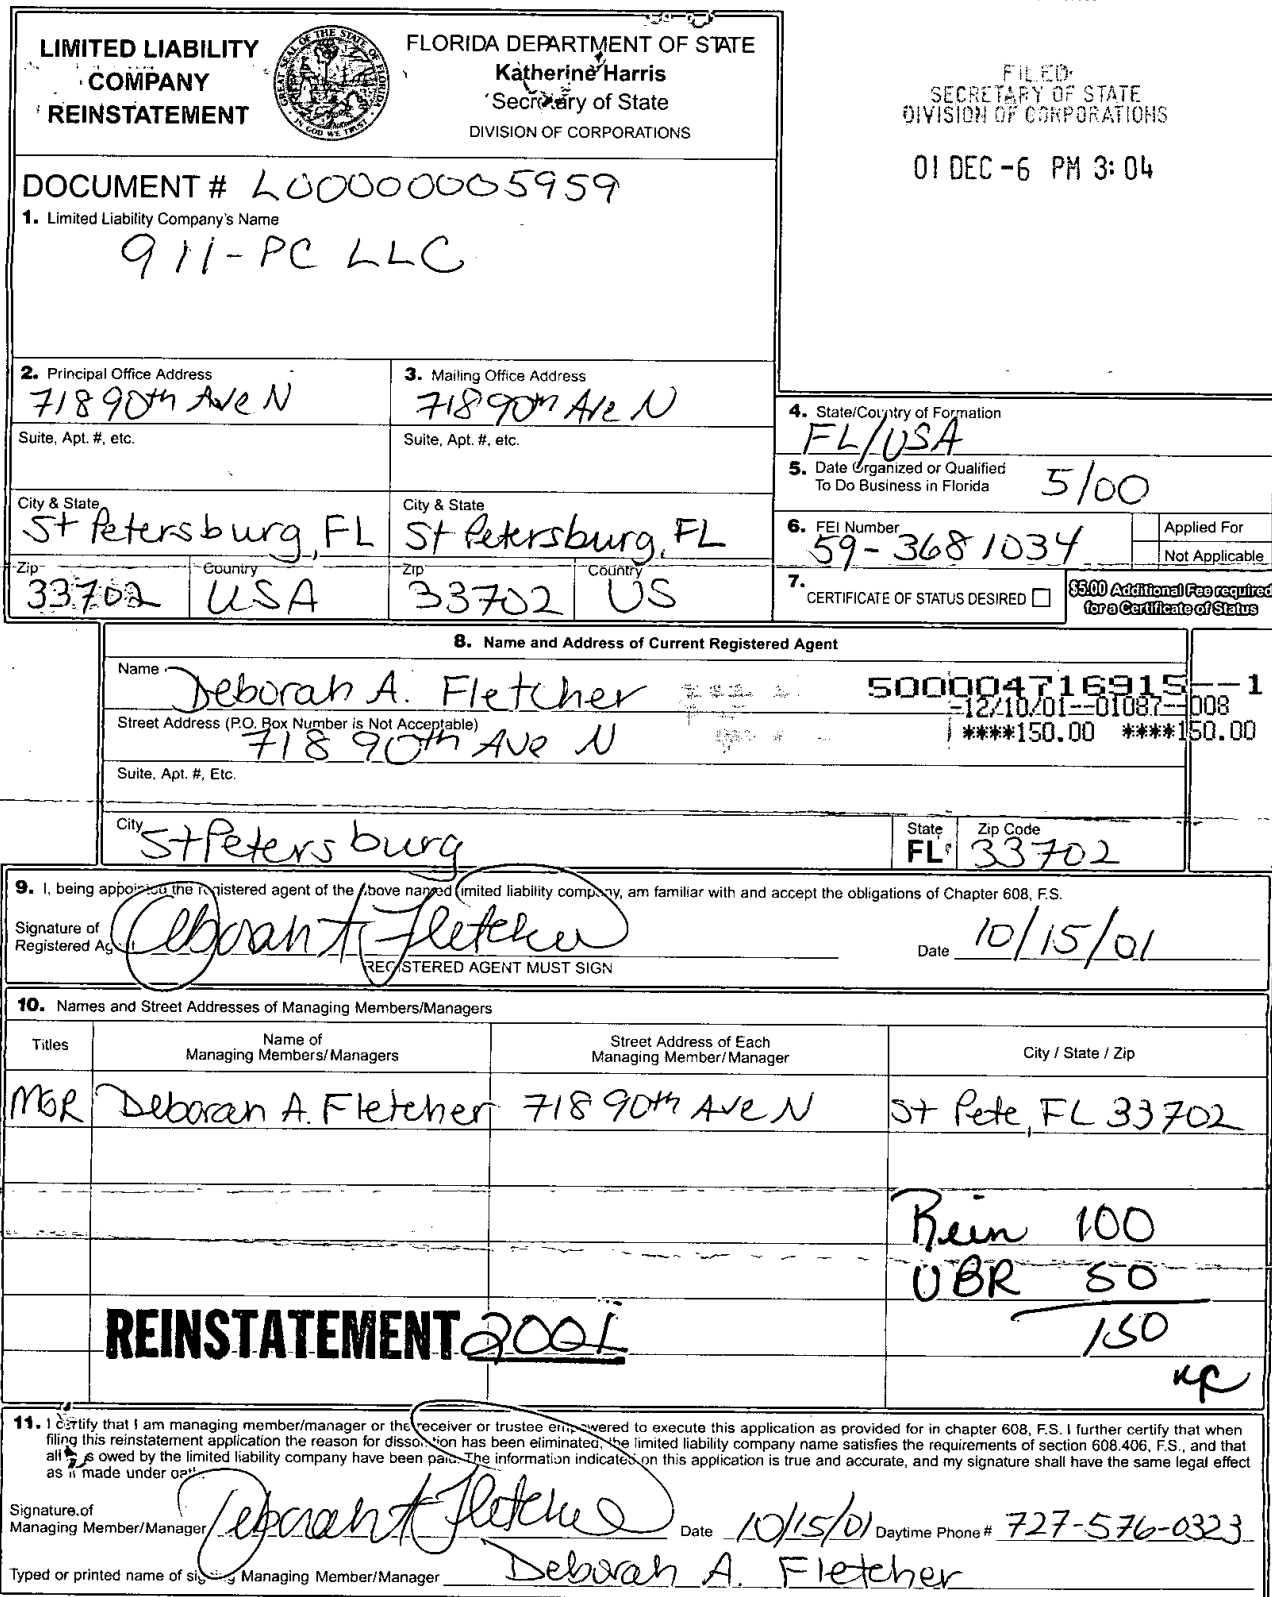 LIMITED LIABILITY
COMPANY
REINSTATEMENT
GREAT SEAL OF THE STATE OF FLORIDA
IN GOD WE TRUST
FLORIDA DEPARTMENT OF STATE
Katherine Harris
Secretary of State
DIVISION OF CORPORATIONS
FILED
SECRETARY OF STATE
DIVISION OF CORPORATIONS
01 DEC -6 PM 3:04
DOCUMENT # L00000005959
1. Limited Liability Company's Name
911-PC LLC
2. Principal Office Address
718 90th Ave N
Suite, Apt. #, etc.
City & State
St Petersburg, FL
Zip
33702
Country
USA
3. Mailing Office Address
718 90th Ave N
Suite, Apt. #, etc.
City & State
St Petersburg, FL
Zip
33702
Country
US
4. State/Country of Formation
FL/USA
5. Date Organized or Qualified
To Do Business in Florida
5/00
6. FEI Number
59-3681034
Applied For
Not Applicable
7. CERTIFICATE OF STATUS DESIRED
$5.00 Additional Fee required
for a Certificate of Status
8. Name and Address of Current Registered Agent
Name
Deborah A. Fletcher
500004716915--1
-12/10/01--01087--008
****150.00 ****150.00
Street Address (P.O. Box Number is Not Acceptable)
718 90th Ave N
Suite, Apt. #, Etc.
City
St Petersburg
State
FL
Zip Code
33702
9. I, being appointed the registered agent of the above named limited liability company, am familiar with and accept the obligations of Chapter 608, F.S.
Signature of
Registered Agent
Deborah A Fletcher
Date 10/15/01
REGISTERED AGENT MUST SIGN
10. Names and Street Addresses of Managing Members/Managers
Titles
Name of
Managing Members/Managers
Street Address of Each
Managing Member/Manager
City / State / Zip
MGR Deborah A. Fletcher 718 90th Ave N St Pete, FL 33702
Rein 100
UBR 50
150
REINSTATEMENT 2001
11. I certify that I am managing member/manager or the receiver or trustee empowered to execute this application as provided for in chapter 608, F.S. I further certify that when
filing this reinstatement application the reason for dissolution has been eliminated, the limited liability company name satisfies the requirements of section 608.406, F.S., and that
all fees owed by the limited liability company have been paid. The information indicated on this application is true and accurate, and my signature shall have the same legal effect
as if made under oath.
Signature of
Managing Member/Manager
Deborah A Fletcher
Date 10/15/01 Daytime Phone # 727-576-0323
Typed or printed name of signing Managing Member/Manager Deborah A. Fletcher